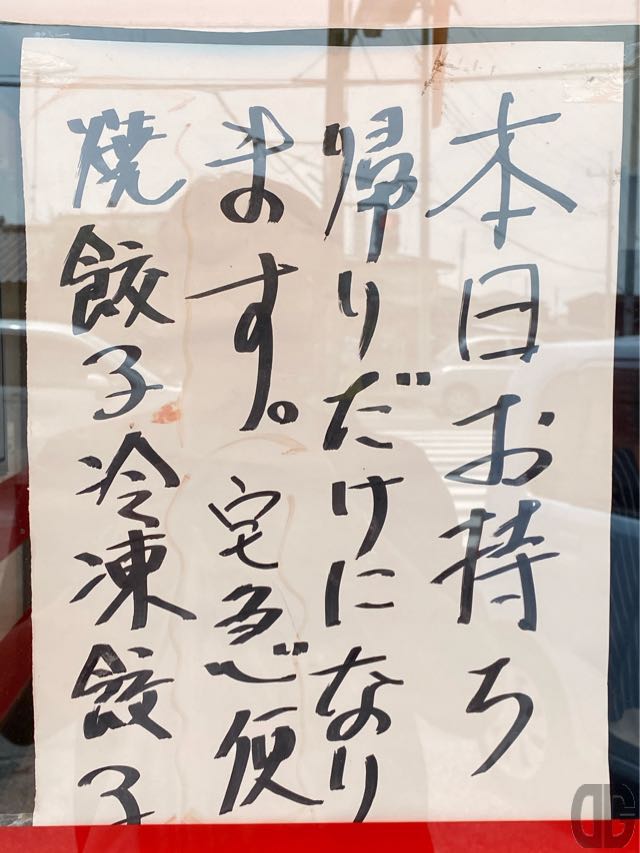 本日お持ち
帰りだけになり
ます。宅急便
焼餃子冷凍餃子